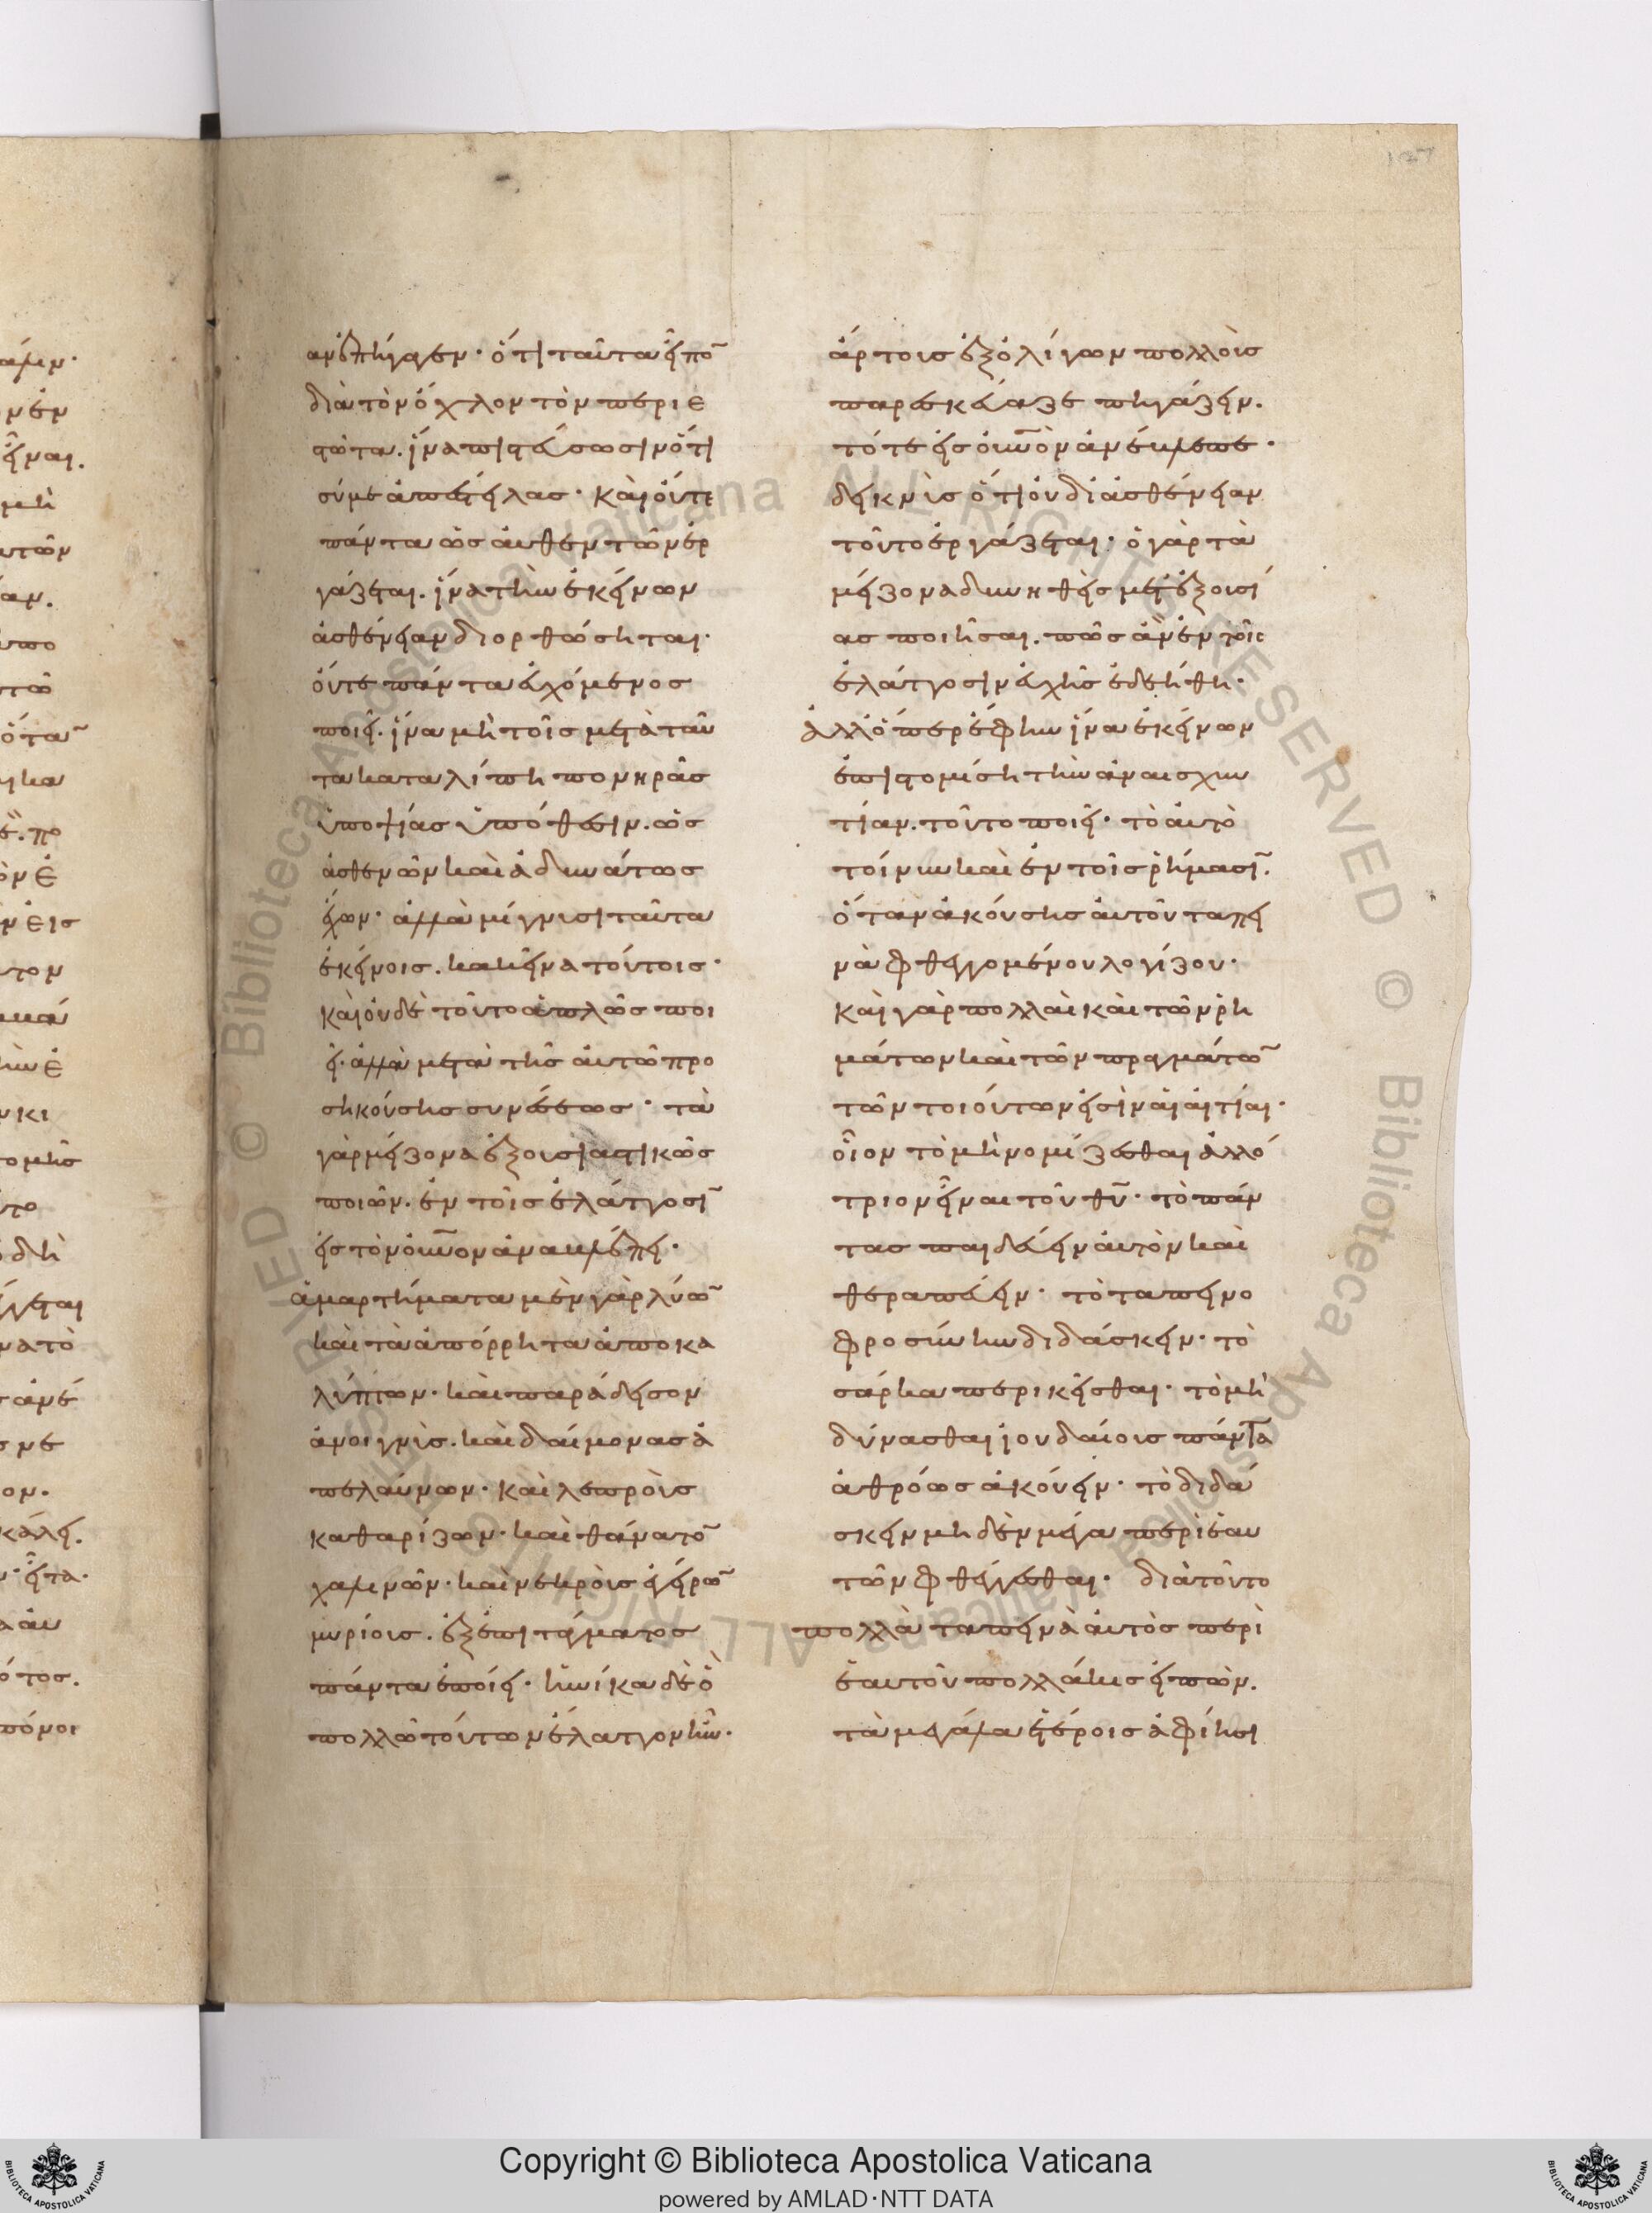 ανεπήγαγεν· ὅτι ταῦτα εἶπο̅
διὰ τὸν ὄχλον τὸν περιε
στῶτα. ἵνα πιστεύσωσιν ὅτι
σύ με ἀπέστειλας· καὶ οὔτε
πάντα ὡς αὐθεντῶν ἐρ
γάζεται. ἵνα τὴν ἐκείνων
ἀσθένειαν διορθώσηται·
οὔτε πάντα εὐχόμενος
ποιεῖ. ἵνα μὴ τοῖς μετὰ ταῦ
τα καταλίπη πονηρᾶς
ὑποψίας ὑπόθεσιν. ὡς
ἀσθενῶν καὶ ἀδυνάτως
ἔχων· ἀλλὰ μίγνυσι ταῦτα
ἐκείνοις. κακεῖνα τούτοις·
καὶ οὐδὲ τοῦτο ἁπλῶς ποι
εῖ· ἀλλὰ μετὰ τῆς αὐτῶ προ
σηκούσης συνέσεως· τὰ
γὰρ μείζονα ἐξουσιαστικῶς
ποιῶν. ἐν τοῖς ἐλάττοσι̅
εἰς τὸν οὐ̅νον ἀναβλέπει·
ἁμαρτήματα μὲν γὰρ λύω̅
καὶ τὰ ἀπόρρητα ἀποκα
λύπτων· καὶ παράδεισον
ἀνοιγνὺς. καὶ δαίμονας ἀ
πελαύνων· καὶ λεπροὺς
καθαρίζων· καὶ θάνατο̅
χαλινῶν· καὶ νεκροὺς ἐγείρω̅
μυρίους. ἐξ ἐπιτάγματος
πάντα ἐποίει· ἡνίκα δὲ ὃ
πολλῶ τούτων ἔλαττον ἦν·
ἄρτους ἐξ ὀλίγων πολλοὺς
παρεσκεύαζε πηγάζειν.
τότε εἰς οὐ̅νὸν ἀνέβλεπε·
δεικνὺς ὅτι οὐ δι ἀσθένειαν
τοῦτο ἐργάζεται· ὁ γὰρ τὰ
μείζονα δυνηθεὶς μετ ἐξουσί
ας ποιῆσαι. πῶς ἂν ἐν τοῖς
ἐλάττοσιν εὐχῆς ἐδεήθη·
ἀλλ ὅπερ ἔφην ἵνα ἐκείνων
ἐπιστομίση τὴν ἀναισχυν
τίαν. τοῦτο ποιεῖ· τὸ αὐτὸ
τοίνυν καὶ ἐν τοῖς ῥήμασι̅.
ὅταν ἀκούσης αὐτοῦ ταπει
νὰ φθεγγομένου λογίζου·
καὶ γὰρ πολλαὶ καὶ τῶν ῥη
μάτων καὶ τῶν πραγμάτω̅
τῶν τοιούτων εἰσὶν αἱ αἰτίαι·
οἷον τὸ μὴ νομίζεσθαι ἀλλό
τριον εἶναι τοῦ θυ̅· τὸ πάν
τας παιδεύειν αὐτὸν καὶ
θεραπεύειν· τὸ ταπεινο
φροσύνην διδάσκειν· τὸ
σάρκα περικεῖσθαι· τὸ μὴ
δύνασθαι ἰουδαίους πάντα
ἀθρόως ἀκούειν· τὸ διδά
σκειν μηδὲν μέγα περὶ ἑαυ
τῶν φθέγγεσθαι· διὰ τοῦτο
πολλὰ ταπεινὰ αὐτὸς περὶ
ἑαυτοῦ πολλάκις εἰπὼν.
τὰ μεγάλα ἑτέροις ἀφίησι
Copyright © Biblioteca Apostolica Vaticana
powered by AMLAD·NTT DATA